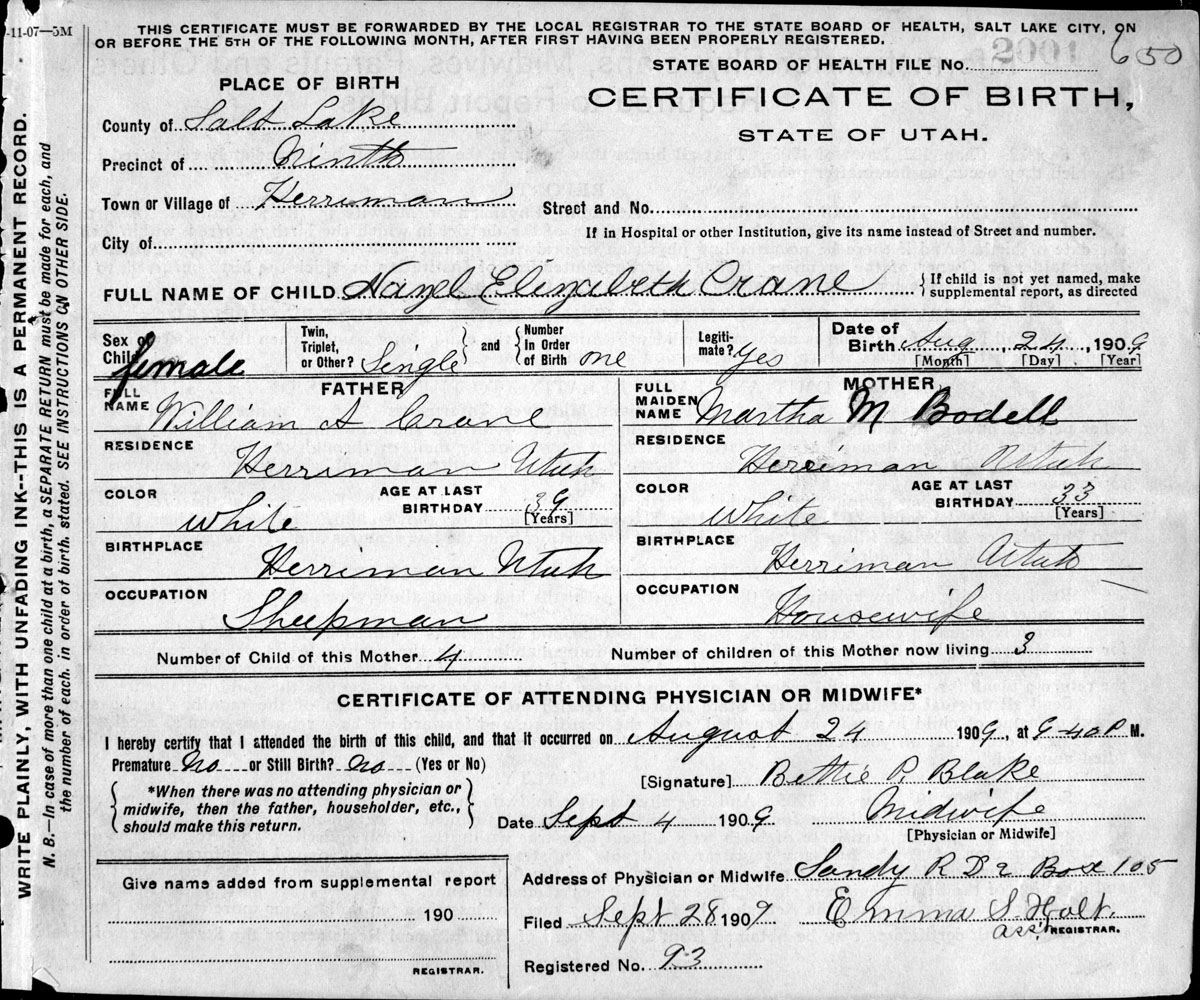 -11-07—5M
THIS CERTIFICATE MUST BE FORWARDED BY THE LOCAL REGISTRAR TO THE STATE BOARD OF HEALTH, SALT LAKE CITY, ON
OR BEFORE THE 5TH OF THE FOLLOWING MONTH, AFTER FIRST HAVING BEEN PROPERLY REGISTERED.
650
STATE BOARD OF HEALTH FILE No. 2001
PLACE OF BIRTH
CERTIFICATE OF BIRTH,
STATE OF UTAH.
County of Salt Lake
Precinct of Ninth
Town or Village of Herriman
Street and No.
City of
If in Hospital or other Institution, give its name instead of Street and number.
FULL NAME OF CHILD Hazel Elizabeth Crane { If child is not yet named, make
supplemental report, as directed
Sex of Child female
Twin, Triplet, or Other? Single } and { Number In Order of Birth one
Legitimate? yes
Date of Birth Aug 24, 1909
[Month] [Day] [Year]
FATHER
FULL NAME William A Crane
RESIDENCE
Herriman Utah
COLOR White AGE AT LAST BIRTHDAY 39 [Years]
BIRTHPLACE
Herriman Utah
OCCUPATION
Sheepman
MOTHER
FULL MAIDEN NAME Martha M Bodell
RESIDENCE
Herriman Utah
COLOR White AGE AT LAST BIRTHDAY 33 [Years]
BIRTHPLACE
Herriman Utah
OCCUPATION
Housewife
Number of Child of this Mother 4 Number of children of this Mother now living 3
CERTIFICATE OF ATTENDING PHYSICIAN OR MIDWIFE*
I hereby certify that I attended the birth of this child, and that it occurred on August 24 1909, at 9-40 P. M.
Premature No or Still Birth? No (Yes or No)
*When there was no attending physician or
midwife, then the father, householder, etc.,
should make this return.
[Signature] Bettie P. Blake
Date Sept 4 1909 Midwife
[Physician or Midwife]
Give name added from supplemental report
190
REGISTRAR.
Address of Physician or Midwife Sandy R D 2 Box 105
Filed Sept 28 1909 Emma S. Holt.
asst REGISTRAR.
Registered No. 93
WRITE PLAINLY, WITH UNFADING INK--THIS IS A PERMANENT RECORD.
N. B.—In case of more than one child at a birth, a SEPARATE RETURN must be made for each, and
the number of each, in order of birth, stated. SEE INSTRUCTIONS ON OTHER SIDE.